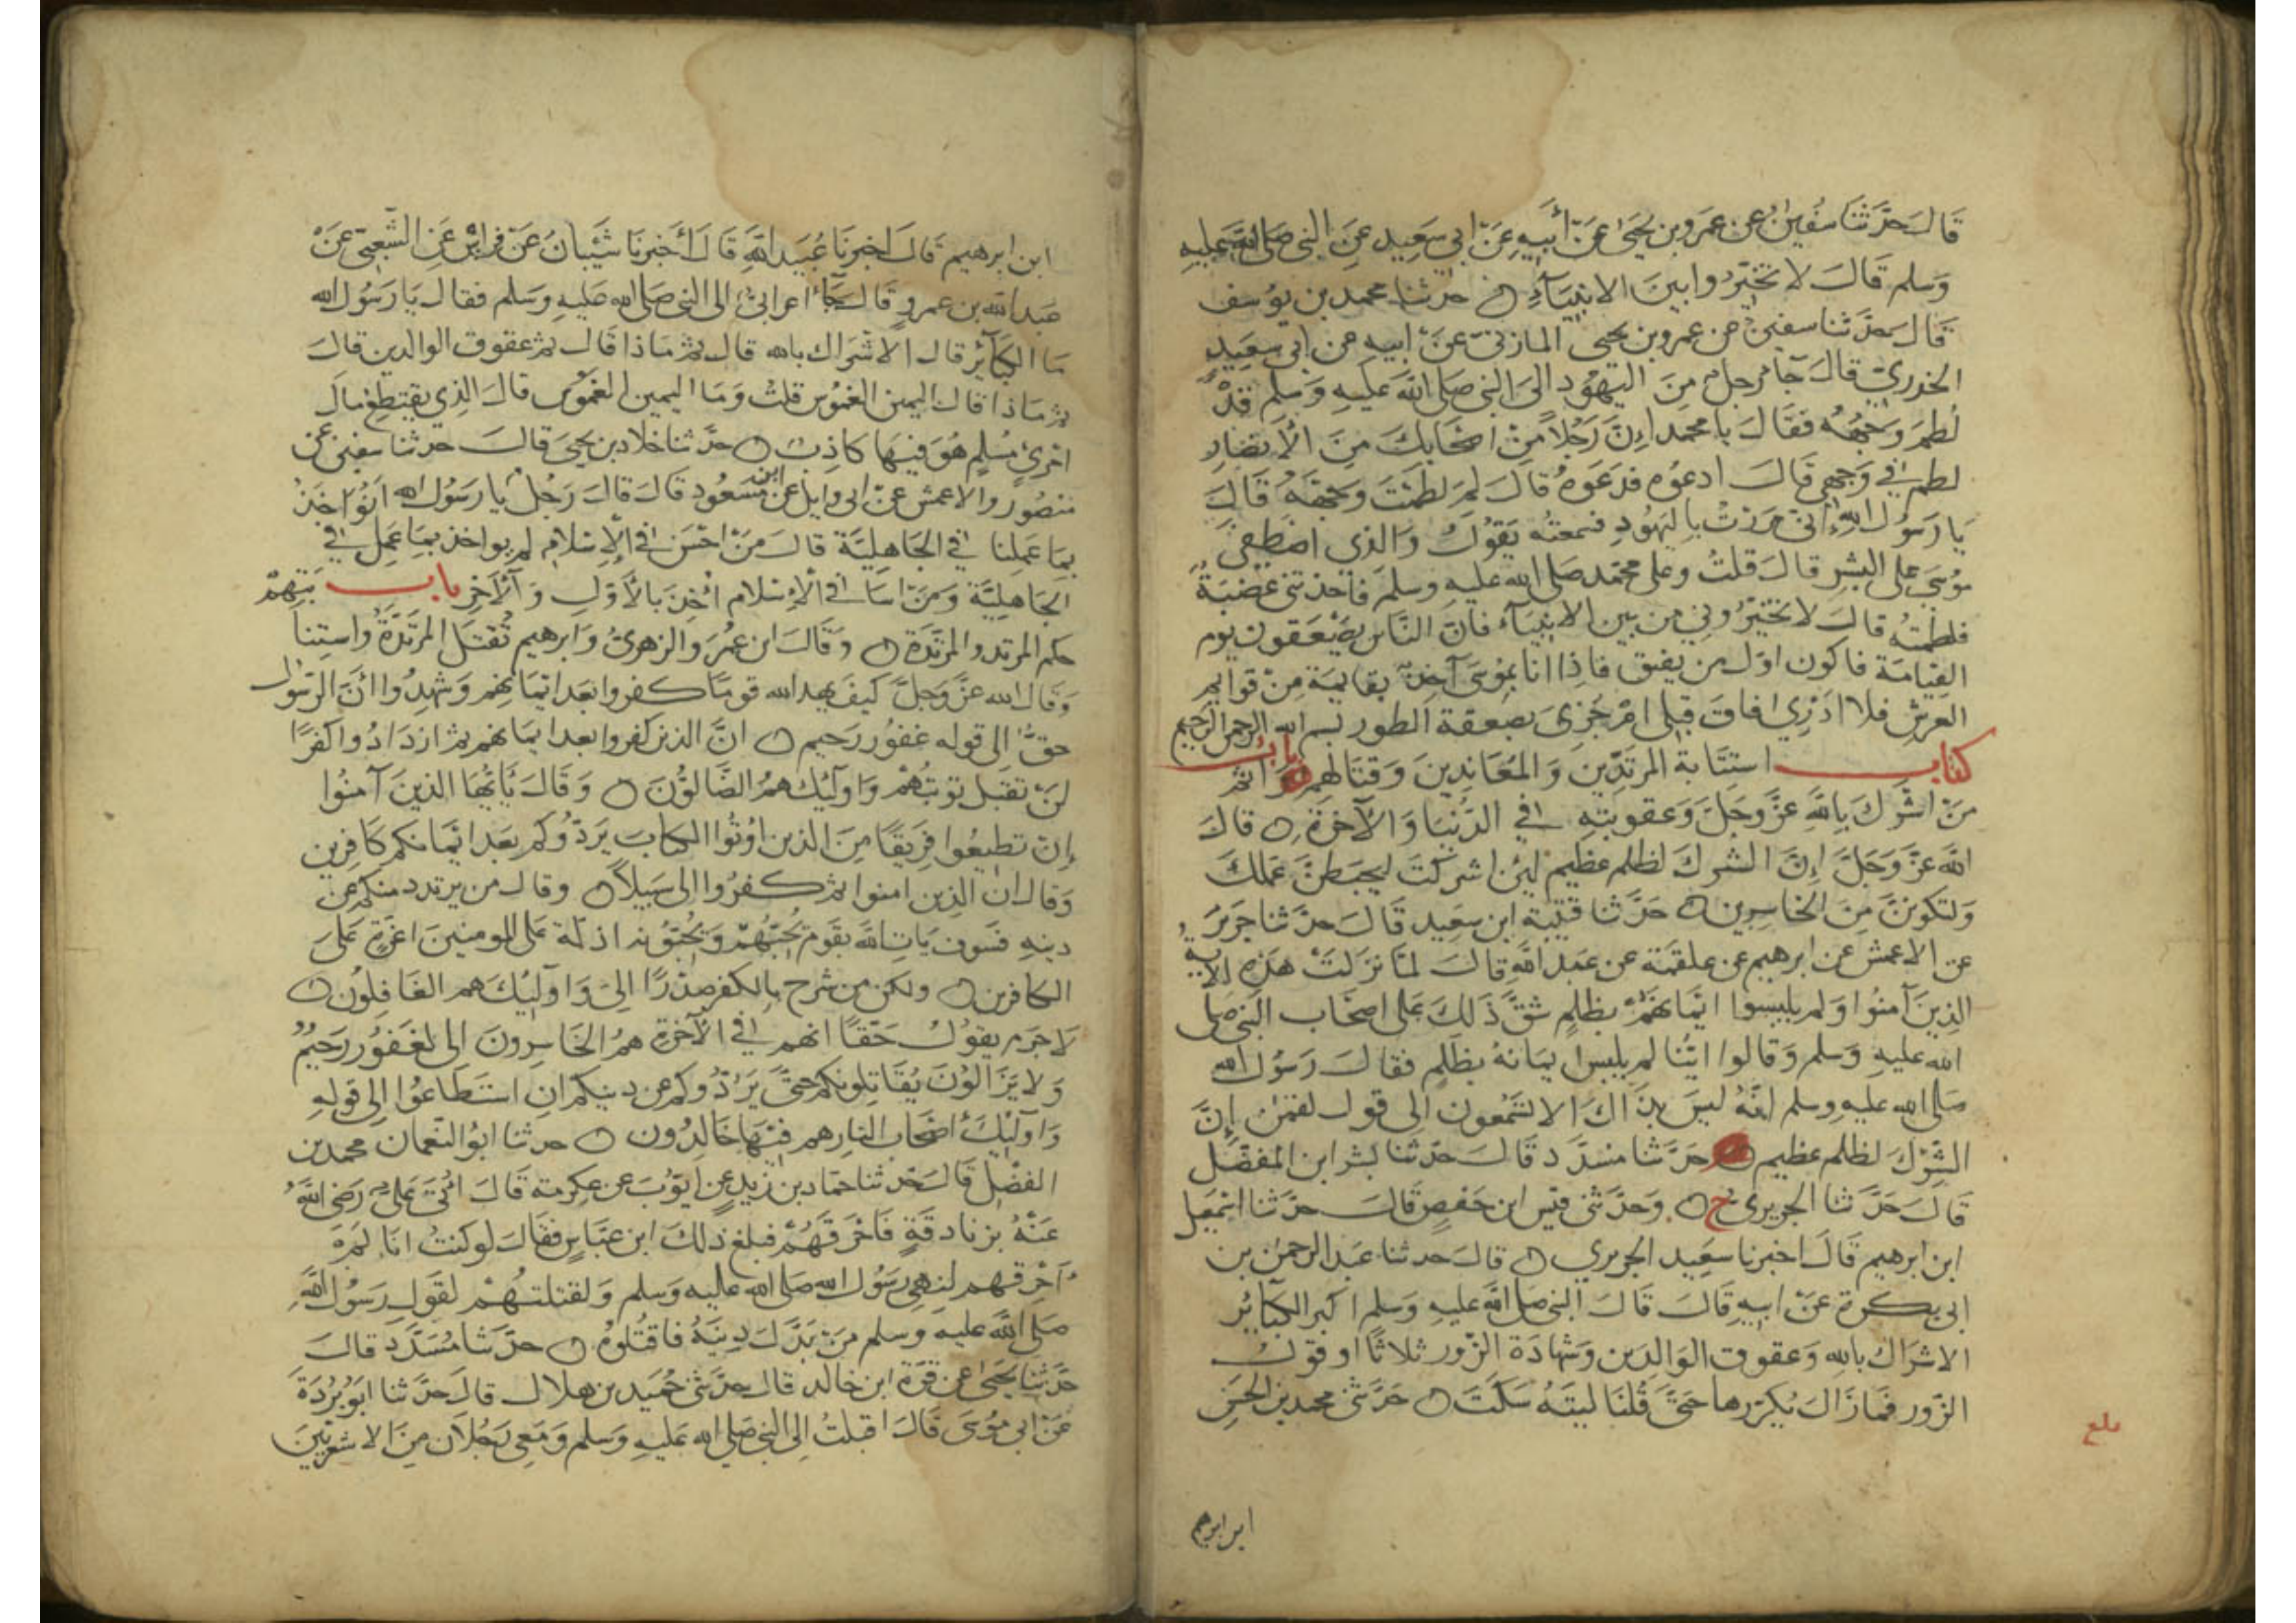 قَالَ حَدَّثَنَا سُفْيٰنُ عن عمرو بن يحيى عَن أبيهِ عَن ابي سَعِيد عَنِ النبي صلى الله عليه
وَسلم قَالَ لا تخيّروا بينَ الانبيآءِ ۝ حدثنا محمد بن يوُسف
قَالَ حدَّثنا سفيٰن عن عمرو بن يحيى المازنيّ عَنْ ابيهِ عن ابي سعِيدٍ
الخدريّ قالَ جآء رجلٌ مِنَ اليهُودِ الىَ النبي صَلى اللهَ عليهِ وَسَلم قَدْ
لُطِمَ وَجْهُهُ فقَالَ يا محمد اِنَّ رَجُلاً مِنْ اصْحَابِكَ مِنَ الاَنصَارِ
لطم في وَجهي قَالَ ادعُوه فدَعَوهُ قَالَ لِمَ لطَمْتَ وَجْهَهُ قَالَ
يَا رَسوُل اللهِ اِنّي مَرَرْتُ باليَهُودِ فسمعتُه يَقوُلُ وَالذي اصْطَفَى
موُسَى على البَشرِ قالَ قلتُ وعلى محمّد صلى الله عليه وسلم فأخذتني غضبَةٌ
فلطمتُه قالَ لا تخيّرُوني من بين الانبيَآءِ فانَّ النَّاسَ يَصْعَقون يوم
القِيَامَة فاكون اوّل من يفيق فاِذا انا بموُسَى آخِذٌ بقايمَة مِنْ قوايم
العَرشِ فلا ادْرِي افاقَ قبلى امْ جُزِىَ بصعقة الطور بسم الله الرحمن الرحيم
كتاب استتَابة المرتدّين وَالمعَاندِينَ وَقتَالهم باب وَاثم
مَنْ اشْرَكَ بِاللهِ عَزَّ وجَلَّ وَعقوبتهِ في الدُّنْيَا وَالآخرَة ۝ قالَ
اللهَ عَزَّ وَجَلَّ اِنَّ الشركَ لظلم عظيم لئِن اشركتَ ليحبَطنَّ عَملكَ
وَلتكوننَّ مِنَ الخاسِرِين ۝ حَدَّثنا قتيبة ابن سعِيد قَالَ حدَّثنا جَريرٌ
عن الاعمش عن ابرهيم عن علقمَة عن عَبد اللهِ قالَ لمّا نزلَتْ هَذِهِ الاية
الذِينَ آمنُوا وَلم يلبِسوا ايمانهُمْ بظلمٍ شقَّ ذَلكَ عَلى اصحَاب النبي صلى
الله عليهِ وَسلم وَقالوا ايّنا لم يلبس ايمانهُ بظلمٍ فقالَ رَسوُل الله
صَلى الله عليهِ وسلم انّهُ ليسَ بذَاكَ الا تسْمعون الى قول لقمٰن اِنَّ
الشِّرْكَ لظلم عظيم ۝ حَدَّثنا مسَدَّد قَالَ حَدّثنا بشر ابن المفضّل
قَالَ حَدَّثنا الجريري ح ۝ وَحدّثني قيس ابن حَفصٍ قَالَ حدّثنا اسْمعيل
ابن ابرهيم قَالَ اخبرنا سعِيد الجريري ۝ قالَ حَدثنا عَبد الرحمٰن بن
ابي بكرة عَنْ ابيهِ قَالَ قالَ النبي صَلى اللهَ عليهِ وَسَلم اكبر الكبَآئرِ
الاشرَاك باللهِ وَعقوق الوَالدَين وَشهَادَة الزّور ثلاثًا او قوَل
الزّور فمَا زَالَ يُكرّرها حَتَّى قُلنَا ليتَهُ سَكَتَ ۝ حَدَّثني محمد بن الحسَين
بلغ
ابن ابرهيم
ابن ابرهيم قَالَ اخبرنَا عُبَيد اللهِ قَالَ أَخبرنَا شَيْبَانُ عَنْ فراسٍ عَنِ الشّعبيّ عَنْ
عَبد الله بن عمروٍ قَالَ جَآءَ اعرابيٌّ الى النبي صَلى الله عَليهِ وَسَلم فقالَ يَا رَسُولَ الله
مَا الكبَآئر قالَ الاشرَاك بالله قالَ ثم مَاذا قَالَ ثم عقوق الوالدين قالَ
ثم مَاذا قالَ اليمين الغمُوس قلتُ وَمَا اليمين الغمُوس قالَ الذِي يقتطِع مَالَ
امْرئٍ مُسْلمٍ هُوَ فيهَا كاذِبٌ ۝ حدَّثنا خلاد بن يحيىَ قالَ حدثنا سفيٰن عن
منصُور والاعمش عَنْ ابى وايل عن ابن مَسْعُود قَالَ قالَ رَجُلٌ يا رَسُولَ الله انُؤاخَذُ
بمَا عَمِلنا في الجَاهِليَّة قالَ مَنْ احْسَنَ في الاِسْلام لم يواخذ بمَا عَمِل في
الجَاهِليَّة وَمَنْ اسَا في الاِسْلام اُخِذَ بالأَوّلِ وَالآخِر باب
حكم المرتد والمرْتَدَّة ۝ وَقَالَ ابن عُمَرَ والزهريُّ وَابرهيم تُقتَل المرتَدّةُ واستِتابتهم
وَقالَ الله عزَّ وجَلَّ كيفَ يهدِ الله قومًا كفروا بَعدَ ايمَانِهم وَشهِدُوا أنَّ الرّسُول
حقٌّ الى قوله غفوُر رَحيم ۝ انَّ الذين كفروا بعد ايمَانهم ثم ازدَادُوا كفرًا
لنْ تقبل توبتُهمْ وَاوليٰك همُ الضَّالوُّنَ ۝ وَقَالَ يَأيّهَا الذينَ آمنُوا
إن تطيعُوا فرِيقًا مِنَ الذين اوُتُوا الكتابَ يَردّوُكم بَعَد ايمَانكم كَافِرِين
وَقالَ ان الذِين امنوا ثم كفرُوا الى سَبيلاً ۝ وقالَ من يرتدد منكم عن
دينهِ فسَوفَ يَاتي اللهَ بقَوم يُحبّهُمْ وَيحُبّوُنه اذلّة عَلى المومنينَ اعَزةٍ عَلىَ
الكافرين ۝ ولكن من شرحَ بالكفر صَدْرًا الىَ وَاوليٰكَ هم الغَافِلوُن ۝
لاَ جَرم يقوُلُ حَقًا انهم في الآخرَةِ همُ الخَاسِرونَ الى لغَفوُر رَحِيْمٌ
وَلا يَزَالوُنَ يُقَاتِلونكم حتَّى يَرُدُّوكم عن دينكم انِ استطَاعوُا الى قولهِ
وَاوليٰكَ اصْحَابُ النار هم فيْهَا خَالِدُون ۝ حدثنا ابوُ النّعمان محمد بن
الفضْل قَالَ حَدثنا حمّاد بن زيدٍ عن ايّوُبَ عن عِكرمَة قَالَ اُتيَ عَليٌّ رَضِى اللهَ
عَنْهُ بزنادقَةٍ فَأحْرَقَهُمْ فبلغ ذلكَ ابن عبَّاسٍ فقَالَ لو كنتُ انَا لمْ
اُحرقهم لنهي رسُول الله صَلى الله عليهِ وَسلم وَلقتلتهُمْ لقَولِ رَسُول اللهِ
صَلى اللهَ عليهِ وَسلم مَنْ بَدَّلَ دِينَهُ فاقتُلوهُ ۝ حدَّثنَا مُسَدَّدٌ قالَ
حدَّثنَا يحيىٰ عن قرّة ابن خالد قالَ حدَّثني حُمَيد بن هلالٍ قالَ حَدَّثنا ابوُ بُرْدَةَ
عَنْ ابي موُسَى قَالَ اقبلتُ الى النبي صَلى الله عَليهِ وسَلم وَمَعِي رَجُلاَن مِنَ الاشعريِّينَ